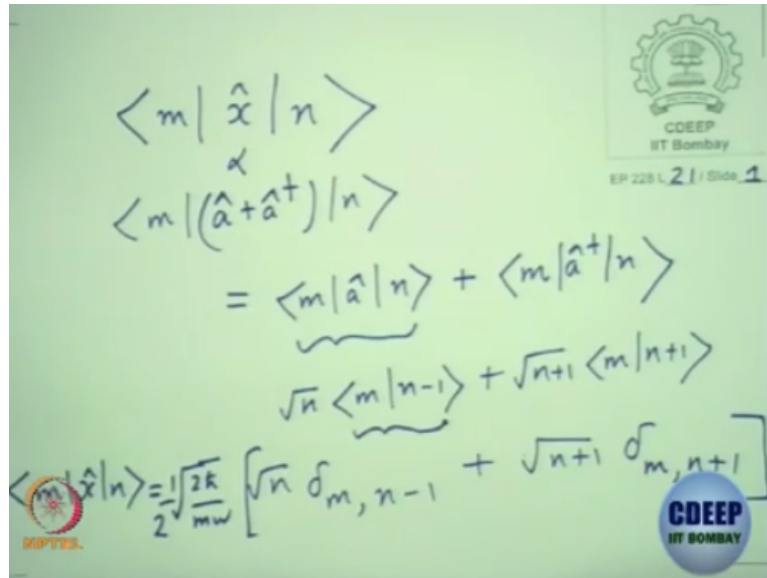 ⟨m| x̂ |n⟩
CDEEP
IIT Bombay
EP 228 L 21 / Slide 1
α
⟨m|(â+â†)|n⟩
= ⟨m|â|n⟩ + ⟨m|â†|n⟩
√n ⟨m|n-1⟩ + √n+1 ⟨m|n+1⟩
⟨m|x̂|n⟩ = 1/2 √(2ħ/mω) [√n δ_m, n-1 + √n+1 δ_m, n+1]
NPTEL
CDEEP
IIT BOMBAY